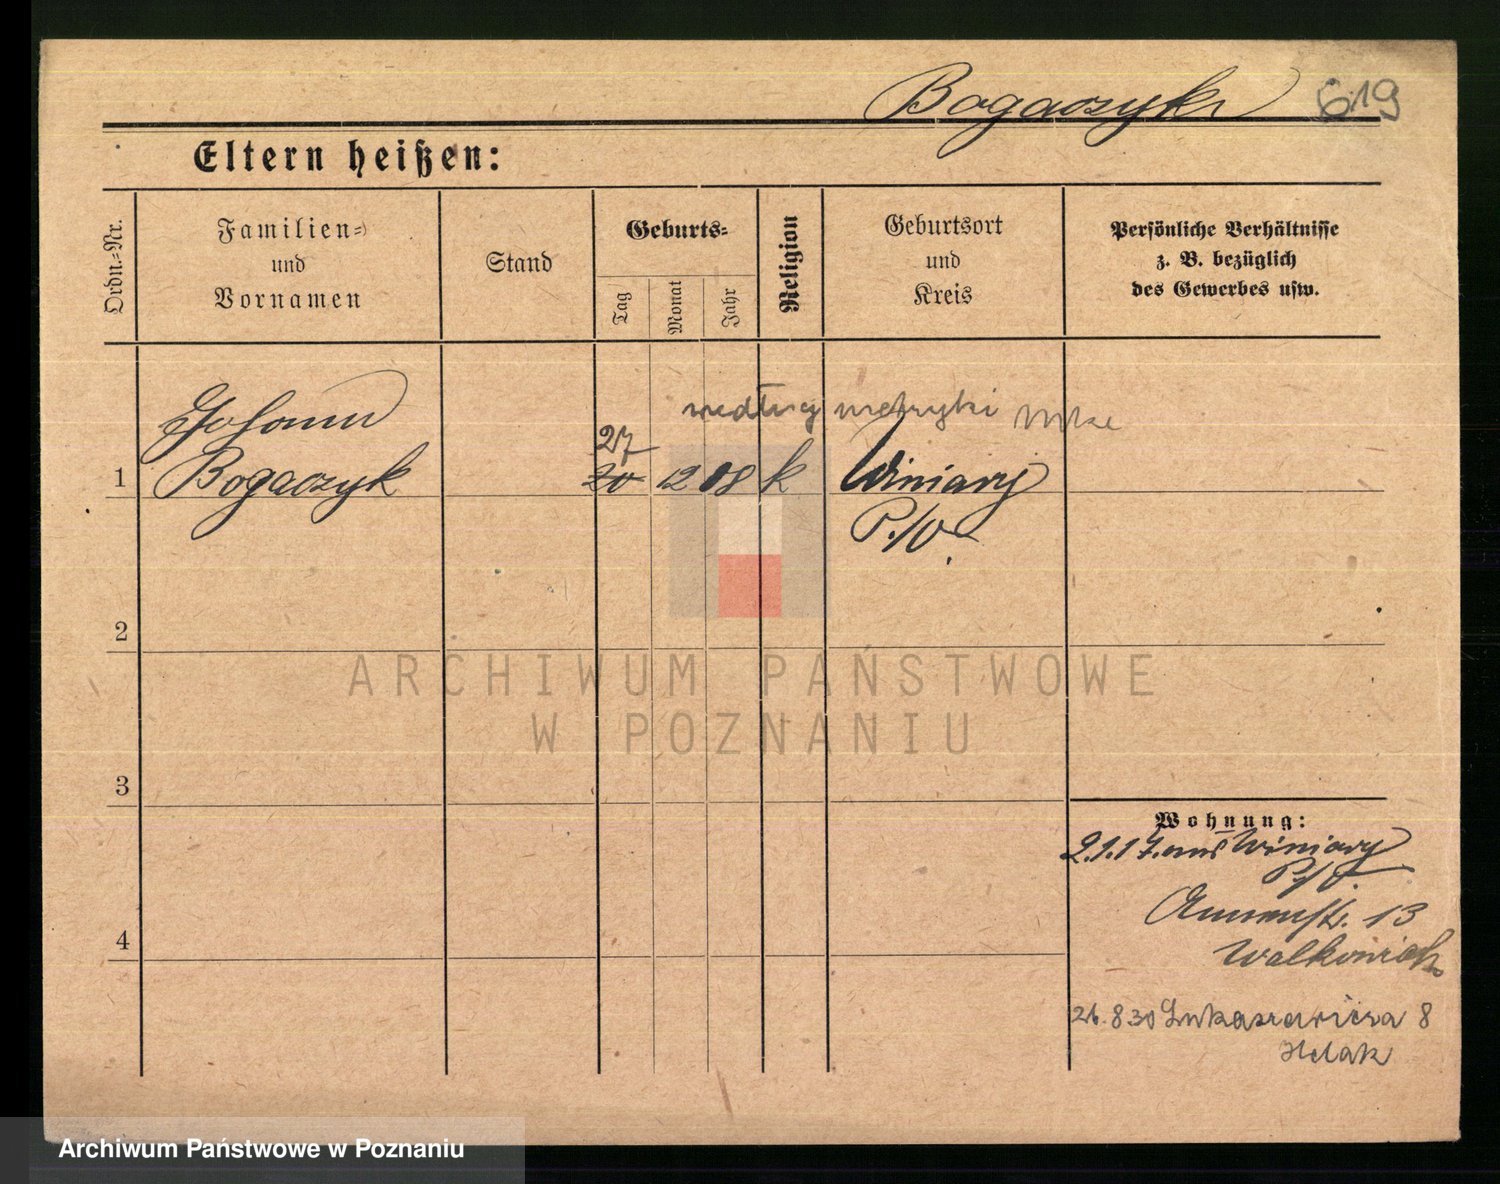 Bogaczyk 619
Eltern heißen:
Ordn.-Nr.
Familien-
und
Vornamen
Stand
Geburts-
Tag
Monat
Jahr
Religion
Geburtsort
und
Kreis
Persönliche Verhältnisse
z. B. bezüglich
des Gewerbes usw.
według metryki
Johann
27
1 Bogaczyk 20 12 08 k Winiary
P./O.
2
3
4
Wohnung:
2.1.17. aus Winiary
P/O.
Annenstr. 13
Walkowiak
26.8 30 Łukaszewicza 8
ARCHIWUM PAŃSTWOWE
W POZNANIU
Archiwum Państwowe w Poznaniu